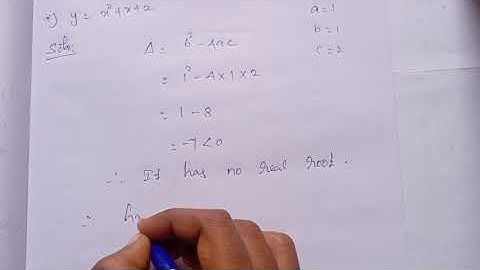 *) y = x² + x + 2
a = 1
b = 1
c = 2
Soln:
Δ = b² - 4ac
= 1² - 4 × 1 × 2
= 1 - 8
= -7 < 0
∴ It has no real root.
∴